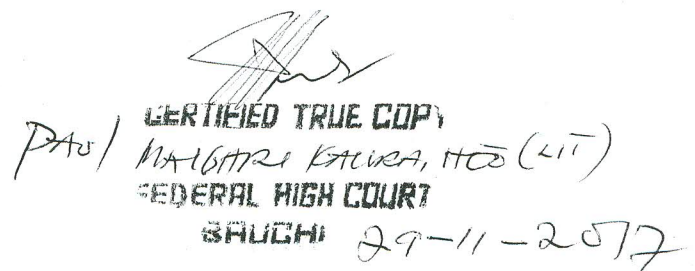 CERTIFIED TRUE COPY
PAUL MAIGARI KAURA, HEO (LIT)
FEDERAL HIGH COURT
BAUCHI 29-11-2017